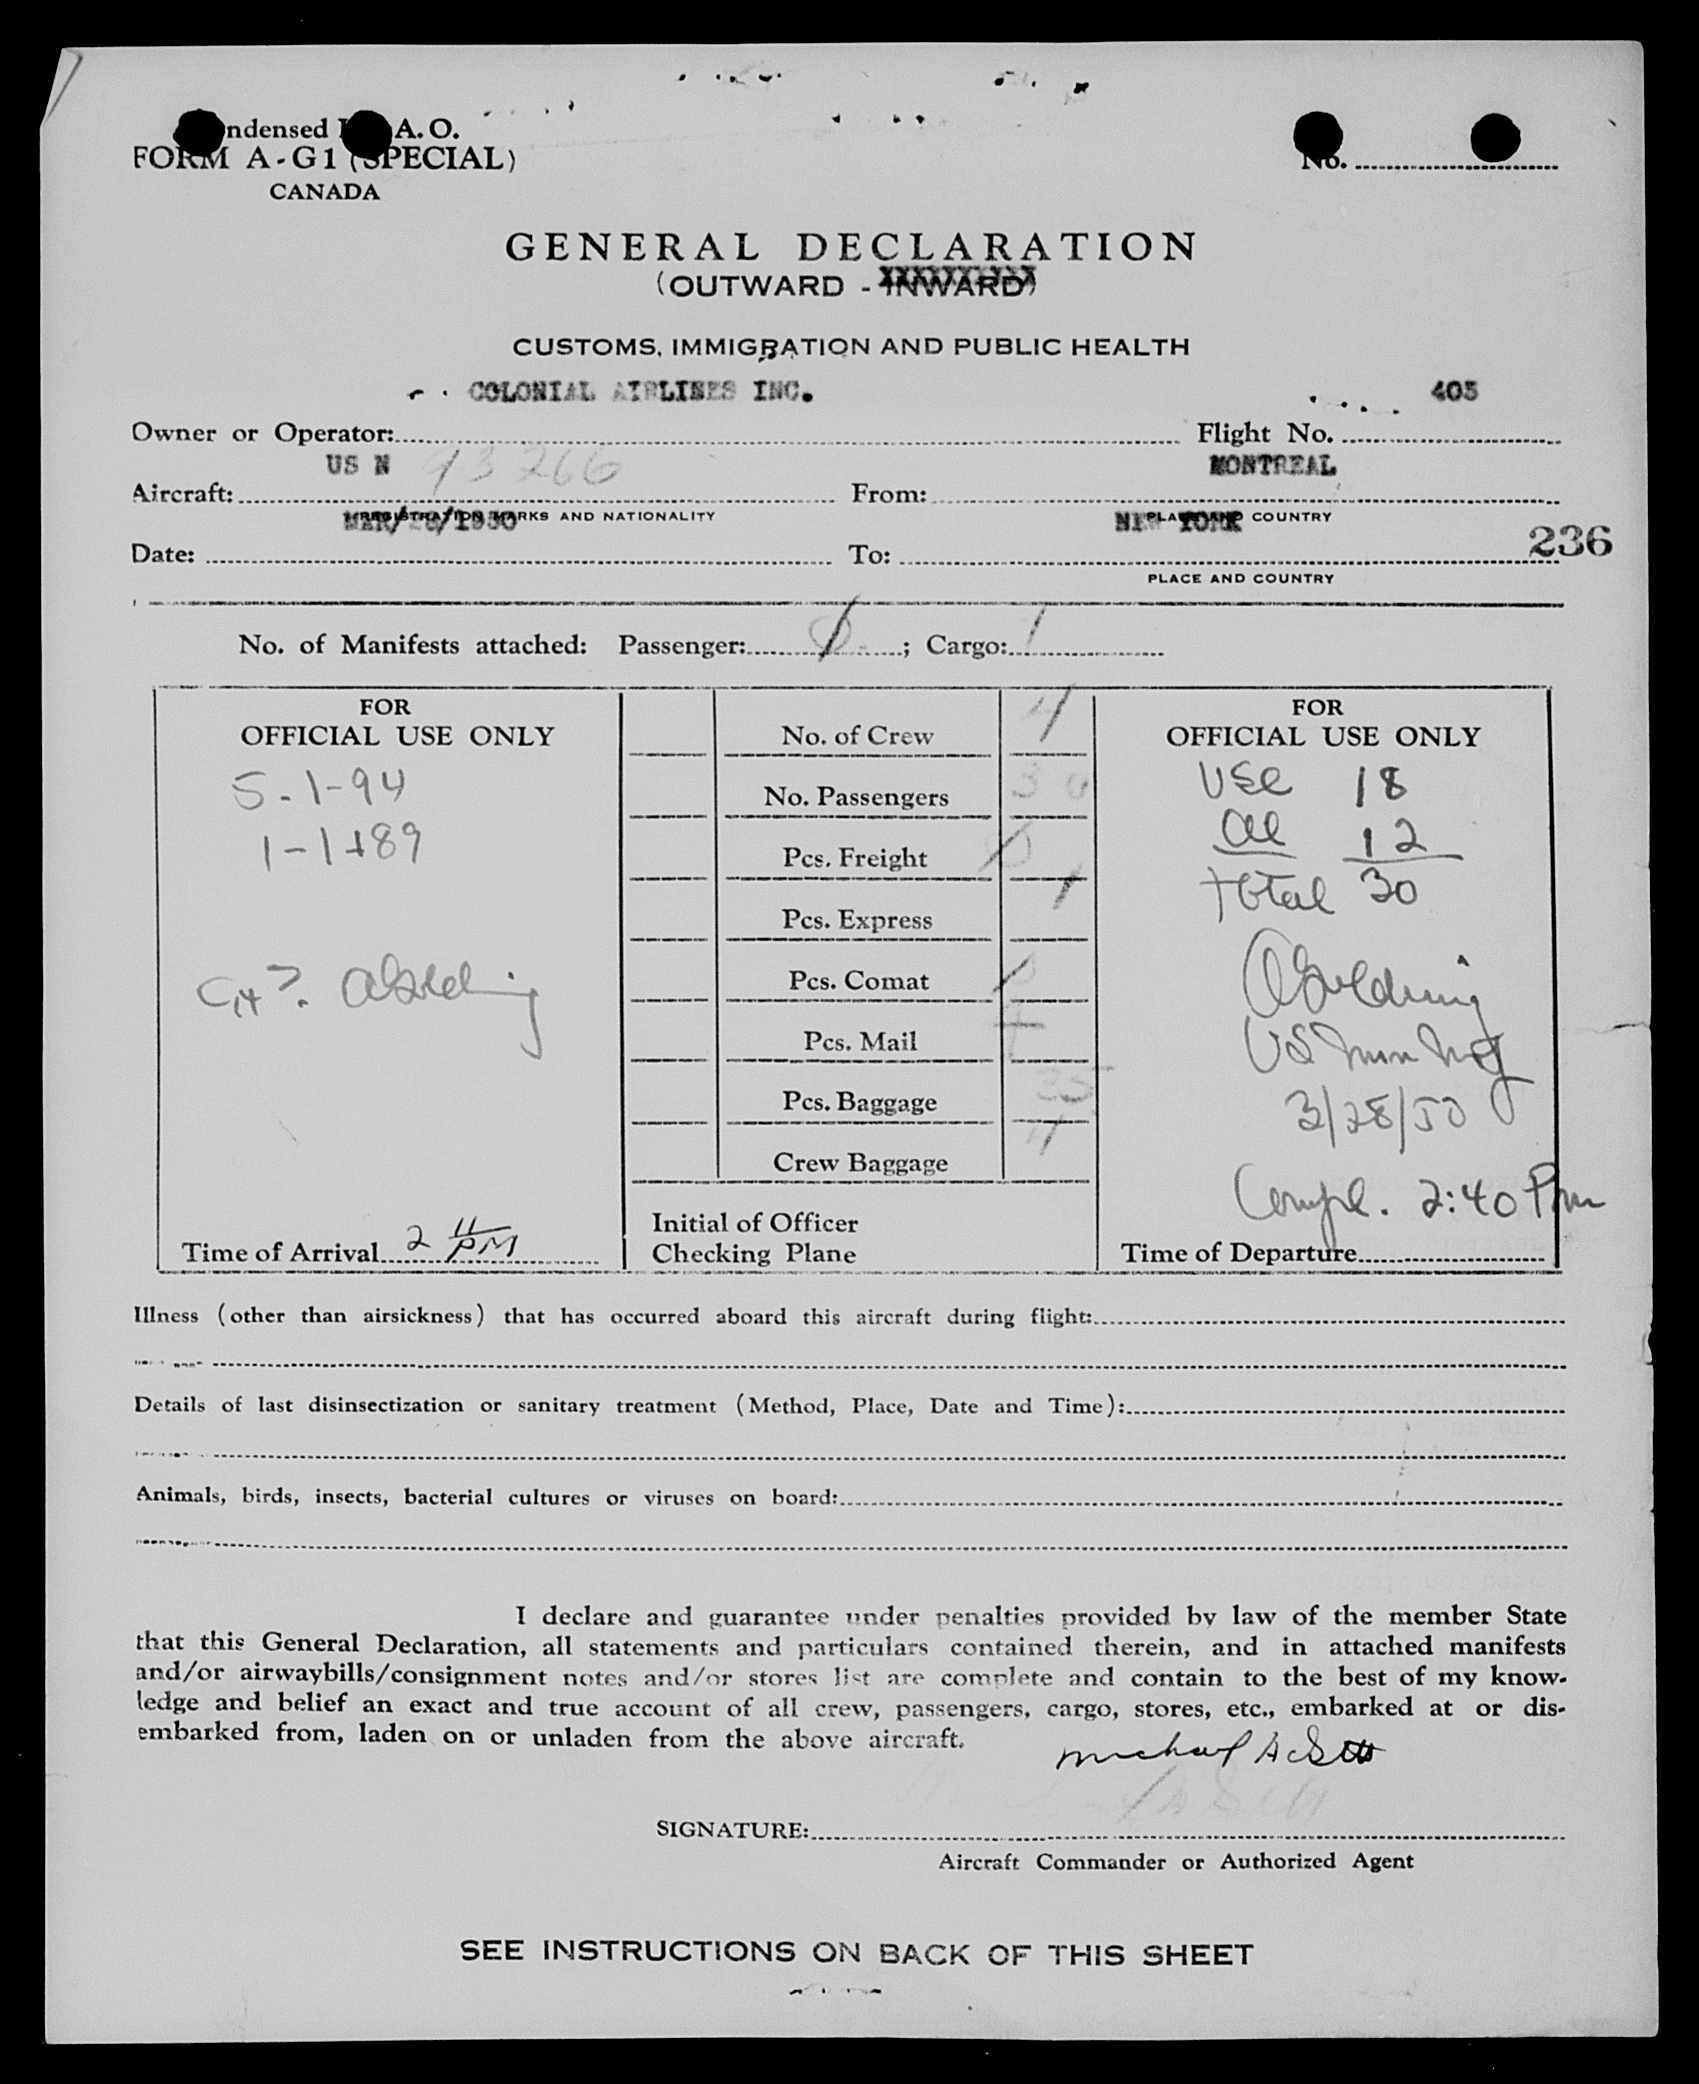 ndensed A. O.
FORM A-G1 (SPECIAL)
CANADA
No.
GENERAL DECLARATION
(OUTWARD - INWARD)
CUSTOMS, IMMIGRATION AND PUBLIC HEALTH
COLONIAL AIRLINES INC. 405
Owner or Operator: Flight No.
US N 93266 MONTREAL
Aircraft: From:
REGISTRATION MARKS AND NATIONALITY PLACE AND COUNTRY
MAR/28/1950 NEW YORK
236
Date: To:
PLACE AND COUNTRY
No. of Manifests attached: Passenger: 0; Cargo: 1
FOR
OFFICIAL USE ONLY
5-1-94
1-1+89
Time of Arrival 2 11 PM
No. of Crew 4
No. Passengers 30
Pcs. Freight 0
Pcs. Express 1
Pcs. Comat 0
Pcs. Mail
Pcs. Baggage 35
Crew Baggage 4
Initial of Officer
Checking Plane
FOR
OFFICIAL USE ONLY
USC 18
al 12
total 30
AGolding
US Imm Insp
3/28/50
Compl. 2:40 Pm
Time of Departure
Illness (other than airsickness) that has occurred aboard this aircraft during flight:
Details of last disinsectization or sanitary treatment (Method, Place, Date and Time):
Animals, birds, insects, bacterial cultures or viruses on board:
I declare and guarantee under penalties provided by law of the member State
that this General Declaration, all statements and particulars contained therein, and in attached manifests
and/or airwaybills/consignment notes and/or stores list are complete and contain to the best of my know-
ledge and belief an exact and true account of all crew, passengers, cargo, stores, etc., embarked at or dis-
embarked from, laden on or unladen from the above aircraft.
Michael A
SIGNATURE:
Aircraft Commander or Authorized Agent
SEE INSTRUCTIONS ON BACK OF THIS SHEET